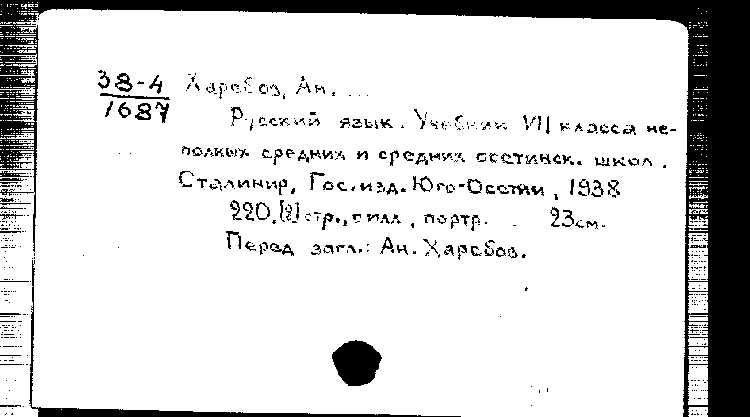 38-4 Харебов, Ан. ...
1687
Русский язык. Учебник VII класса не-
полных средних и средних осетинск. школ.
Сталинир, Гос. изд. Юго-Осетии, 1938
220, [2] стр., с илл., портр. 23 см.
Перед загл.: Ан. Харебов.